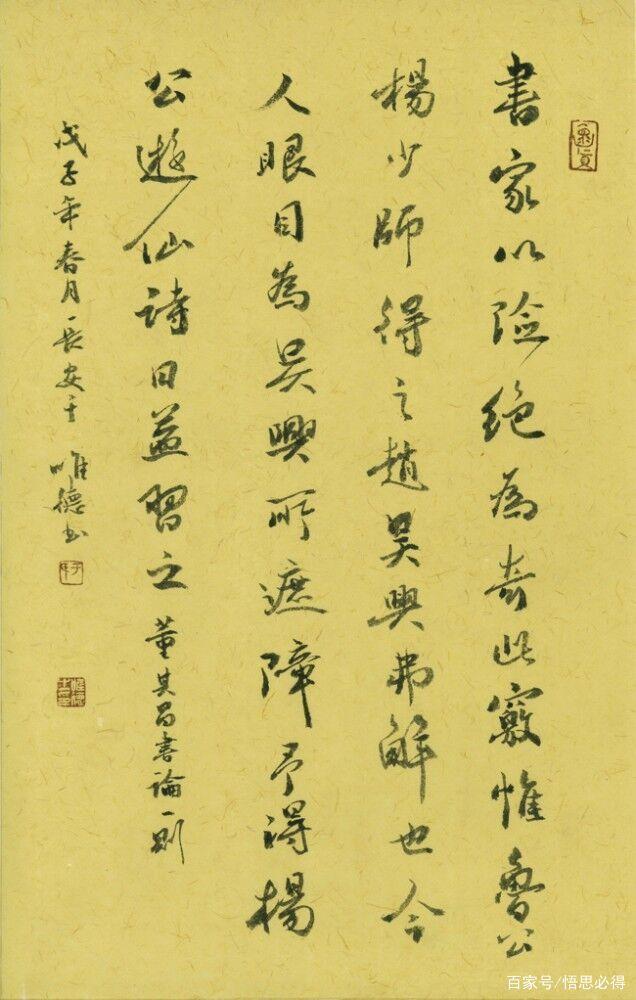 書家以險絕為奇此竅惟魯公
楊少師得之趙吳興弗解也今
人眼目為吳興所遮障予得楊
公遊仙詩日益習之
董其昌書論一則
戊子年春月長安王唯德書
百家号/悟思必得